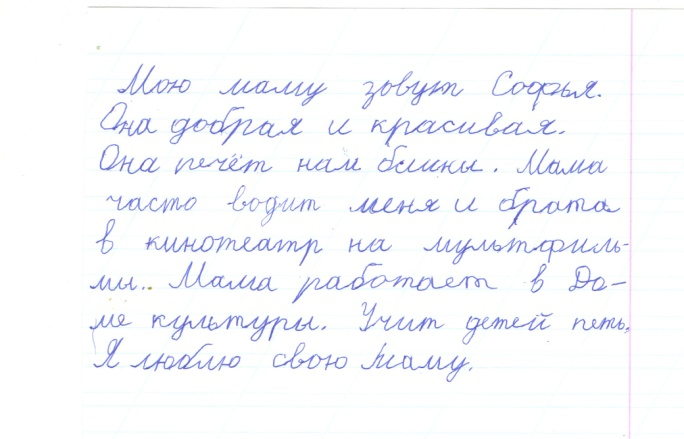 Мою маму зовут Софья.
Она добрая и красивая.
Она печёт нам блины. Мама
часто водит меня и брата
в кинотеатр на мультфиль-
мы.. Мама работает в До-
ме культуры. Учит детей петь.
Я люблю свою маму.